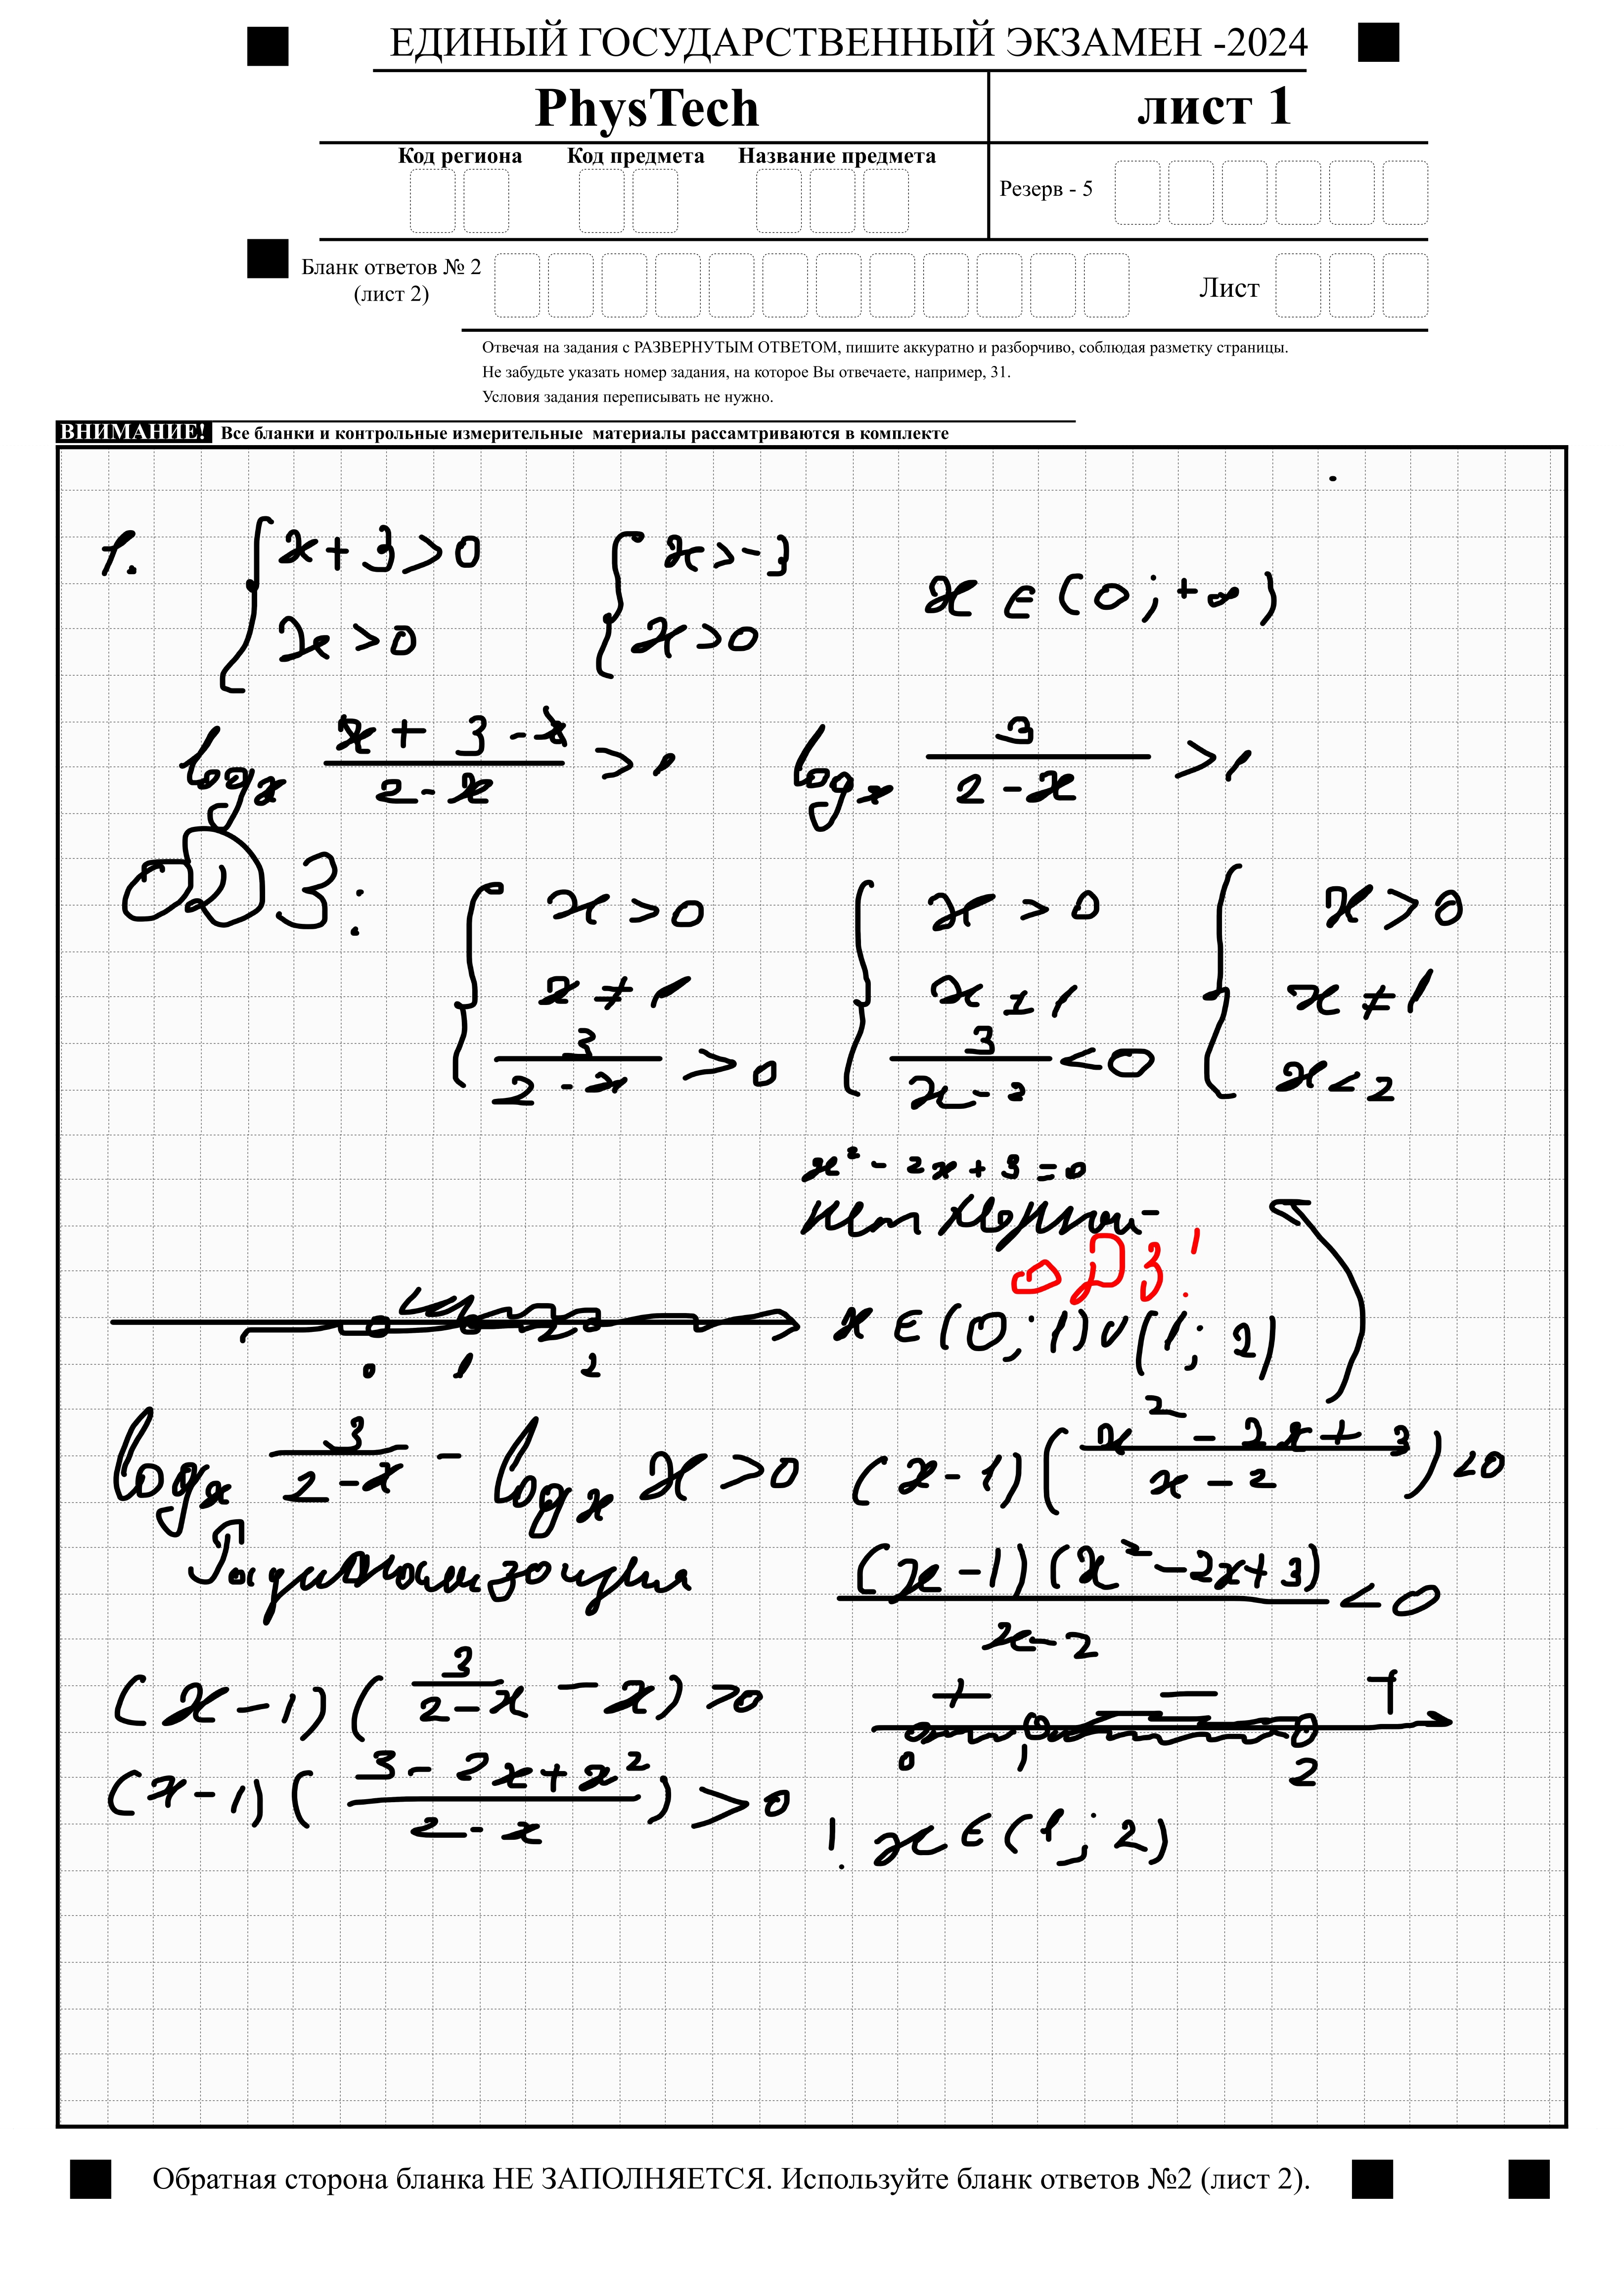 ЕДИНЫЙ ГОСУДАРСТВЕННЫЙ ЭКЗАМЕН -2024
PhysTech
лист 1
Код региона Код предмета Название предмета
Резерв - 5
Бланк ответов № 2
(лист 2)
Лист
Отвечая на задания с РАЗВЕРНУТЫМ ОТВЕТОМ, пишите аккуратно и разборчиво, соблюдая разметку страницы.
Не забудьте указать номер задания, на которое Вы отвечаете, например, 31.
Условия задания переписывать не нужно.
ВНИМАНИЕ! Все бланки и контрольные измерительные материалы рассамтриваются в комплекте
1. { x + 3 > 0 ; x > 0 { x > -3 ; x > 0 x ∈ (0 ; +∞)
log_x (x + 3 - x)/(2 - x) > 1 log_x 3/(2 - x) > 1
ОДЗ: { x > 0 ; x ≠ 1 ; 3/(2 - x) > 0 { x > 0 ; x ≠ 1 ; 3/(x - 2) < 0 { x > 0 ; x ≠ 1 ; x < 2
x² - 2x + 3 = 0
нет корней
ОДЗ!
0 1 2 x ∈ (0 ; 1) ∪ (1 ; 2)
log_x 3/(2 - x) - log_x x > 0
Рационализация
(x - 1)(3/(2 - x) - x) > 0
(x - 1)((3 - 2x + x²)/(2 - x)) > 0
(x - 1)((x² - 2x + 3)/(x - 2)) < 0
(x - 1)(x² - 2x + 3)/(x - 2) < 0
+ - +
0 1 2
! x ∈ (1 ; 2)
Обратная сторона бланка НЕ ЗАПОЛНЯЕТСЯ. Используйте бланк ответов №2 (лист 2).